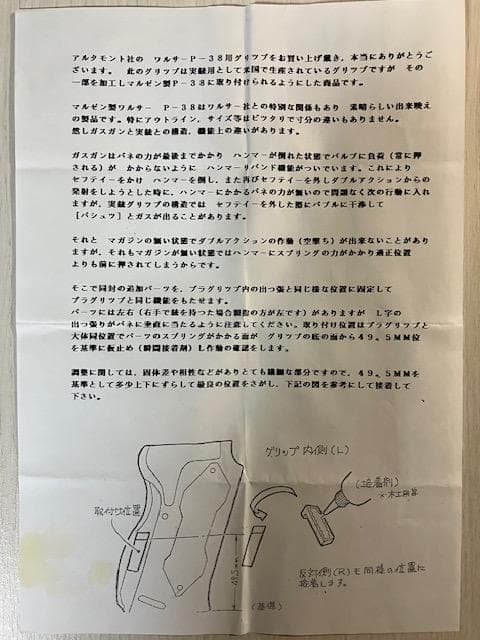 アルタモント社の ワルサーP-38用グリップをお買い上げ戴き、本当にありがとうご
ざいます。 此のグリップは実銃用として米国で生産されているグリップですが その
一部を加工しマルゼン製P-38に取り付けられるようにした商品です。
マルゼン製ワルサー P-38はワルサー社との特別な関係もあり 素晴らしい出来映え
の製品です。特にアウトライン、サイズ等はピッタリで寸分の違いもありません。
然しガスガンと実銃との構造、機能上の違いがあります。
ガスガンはバネの力が最後までかかり ハンマーが倒れた状態でバルブに負荷(常に押
される)が かからないように ハンマーリバンド機能がついています。これにより
セフティーをかけ ハンマーを倒し、また再びセフティーを外しダブルアクションからの
発射をしようとした時に、ハンマーにかかるバネの力が無いので問題なく次の行動に入れ
ますが、実銃グリップの構造では セフティーを外した際にバルブに干渉して
[バシュッ]とガスが出ることがあります。
それと マガジンの無い状態でダブルアクションの作動(空撃ち)が出来ないことがあり
ますが、それもマガジンが無い状態ではハンマーにスプリングの力がかかり適正位置
よりも前に押されてしまうからです。
そこで同封の追加パーツを、プラグリップ内の出っ張と同じ様な位置に固定して
プラグリップと同じ機能をもたせます。
パーツには左右(右手で銃を持つた場合親指の方が左です)がありますが L字の
出っ張りがバネに垂直に当たるように注意してください。取り付け位置はプラグリップと
大体同位置でパーツのスプリングがかかる面が グリップの底の面から49.5MM位
を基準に仮止め(瞬間接着剤)し作動の確認をします。
調整に関しては、固体差や相性などがありとても繊細な部分ですので、49.5MMを
基準として多少上下にずらして最良の位置をさがし、下記の図を参考にして接着して
下さい。
グリップ内側(L)
取付け位置
(接着剤)
※木工用等
49.5mm
(基準)
反対側(R)も同様の位置に
接着します。